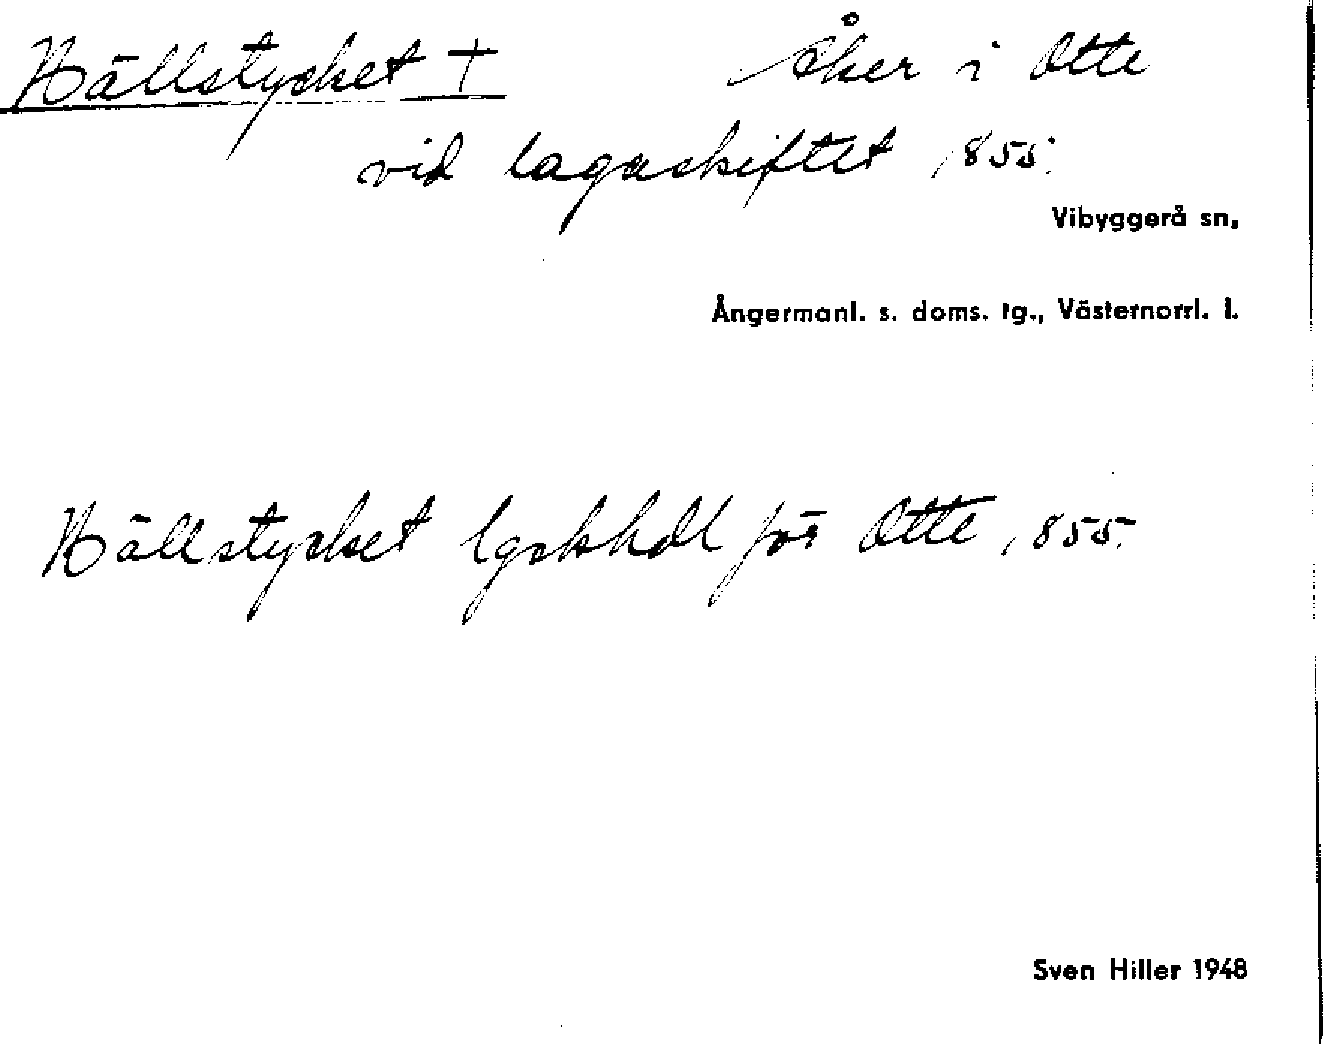 Hällstycket † Åker i Otte
vid lagaskiftet 1855.
Vibyggerå sn,
Ångermanl. s. doms. tg., Västernorrl. l.
Hällstycket lgskhdl för Otte 1855.
Sven Hiller 1948